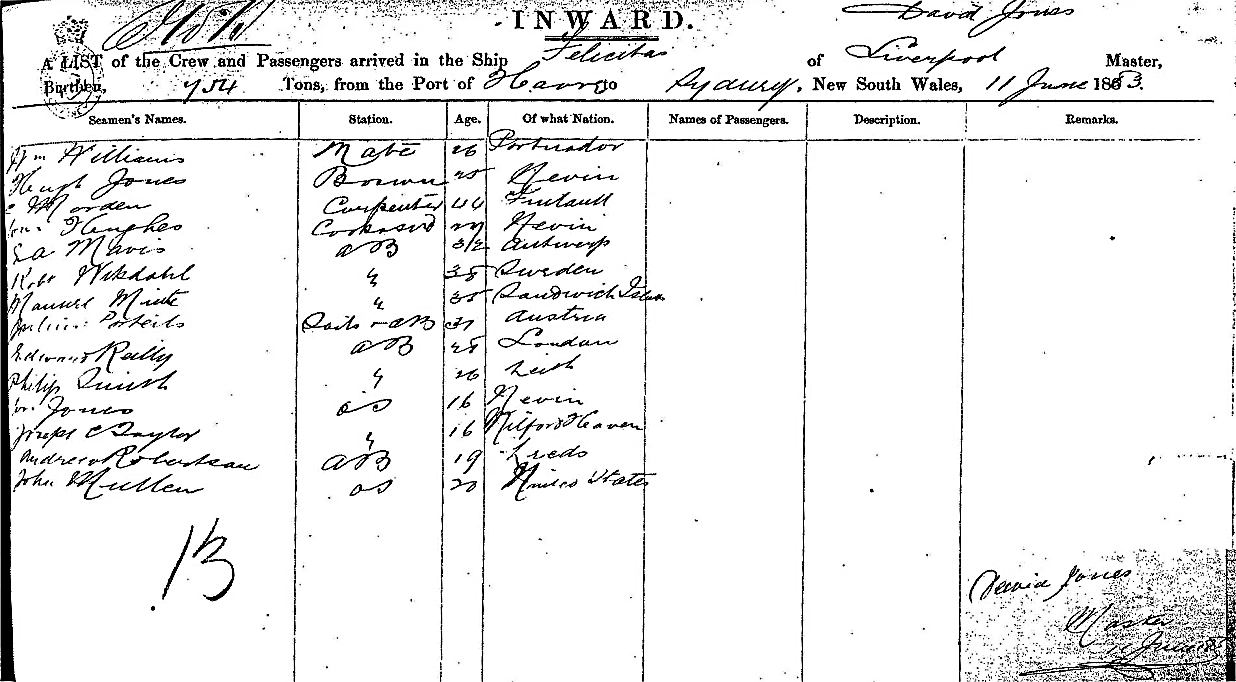 INWARD.
David Jones
A LIST of the Crew and Passengers arrived in the Ship Felicitas of Liverpool Master,
Burthen, 754 Tons, from the Port of to Sydney, New South Wales, 11 June 1883.
Seamen's Names. Station. Age. Of what Nation. Names of Passengers. Description. Remarks.
Wm Williams Mate 26 Portmador
Hugh Jones Boswn 25 Nevin
Morden Carpenter 44
Hughes Nevin
Mavis AB 32 Antwerp
Robt Wikdahl " 35 Sweden
Manuel " 35 Sandwich Islan
Sails & AB 37 Austria
Edward Reilly AB 25 London
Philip Smith " 26 Leith
Jones OS 16 Nevin
Joseph C Taylor " 16 Milford Haven
Andrew Robertson AB 19 Leeds
John Mullen OS 20 United States
13
David Jones
Master
11 June